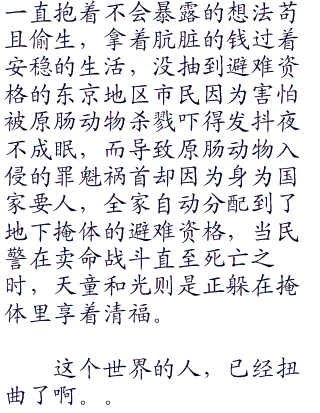 一直抱着不会暴露的想法苟
且偷生，拿着肮脏的钱过着
安稳的生活，没抽到避难资
格的东京地区市民因为害怕
被原肠动物杀戮吓得发抖夜
不成眠，而导致原肠动物入
侵的罪魁祸首却因为身为国
家要人，全家自动分配到了
地下掩体的避难资格，当民
警在卖命战斗直至死亡之
时，天童和光则是正躲在掩
体里享着清福。
这个世界的人，已经扭
曲了啊。。